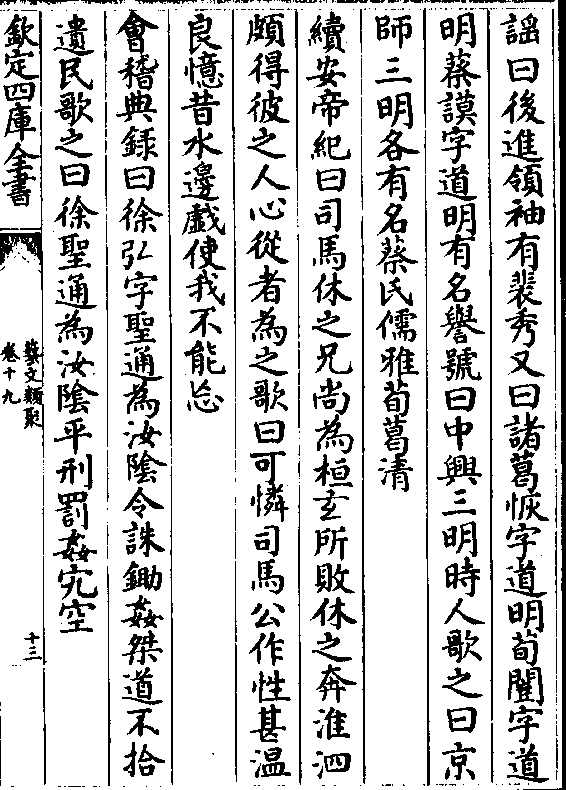 謡曰後進領袖有裴秀又曰諸葛恢字道明荀闓字道
明蔡謨字道明有名譽號曰中興三明時人歌之曰京
師三明各有名蔡氏儒雅荀葛清
續安帝紀曰司馬休之兄尚為桓玄所敗休之奔淮泗
頗得彼之人心從者為之歌曰可憐司馬公作性甚温
良憶昔水邊戲使我不能忘
會稽典録曰徐弘字聖通為汝隂令誅鋤姦桀道不拾
遺民歌之曰徐聖通為汝隂平刑罰姦宄空
欽定四庫全書
藝文類聚
卷十九
十三